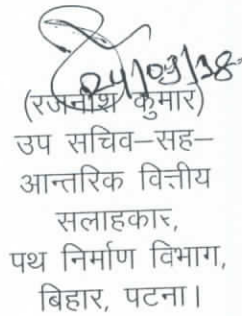 24/03/18
(रजनीश कुमार)
उप सचिव–सह–
आन्तरिक वित्तीय
सलाहकार,
पथ निर्माण विभाग,
बिहार, पटना।